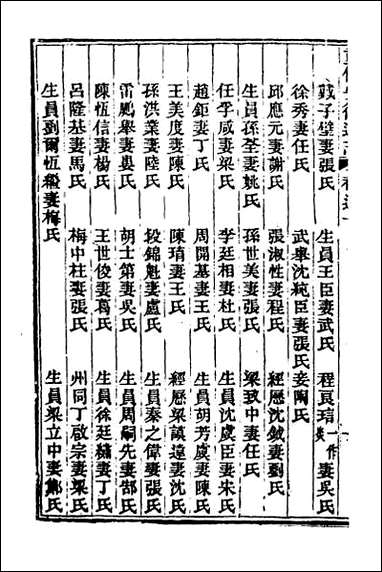 戴子璧妻張氏 生員王臣妻武氏 程真瑄一作炎妻吳氏
徐秀妻任氏 武舉沈琬臣妻張氏妾陶氏
邱應元妻謝氏 張淑性妻程氏 經歷沈鉞妻劉氏
生員孫荃妻姚氏 孫世美妻張氏 梁致中妻任氏
任孚咸妻梁氏 李廷相妻杜氏 生員沈虞臣妻朱氏
趙鉅妻丁氏 周開基妻王氏 生員胡芳虞妻陳氏
王美度妻陳氏 陳瑱妻王氏 經歷梁議遠妻沈氏
孫洪業妻陸氏 段錦魁妻盧氏 生員秦之偉妻張氏
雷颺舉妻婁氏 胡士第妻吳氏 生員周嗣先妻郜氏
陳恆信妻楊氏 王世俊妻葛氏 生員徐廷樞妻丁氏
呂隆基妻馬氏 梅中柱妻張氏 州同丁啟宗妻梁氏
生員劉爾恆繼妻梅氏 生員梁立中妻鄭氏